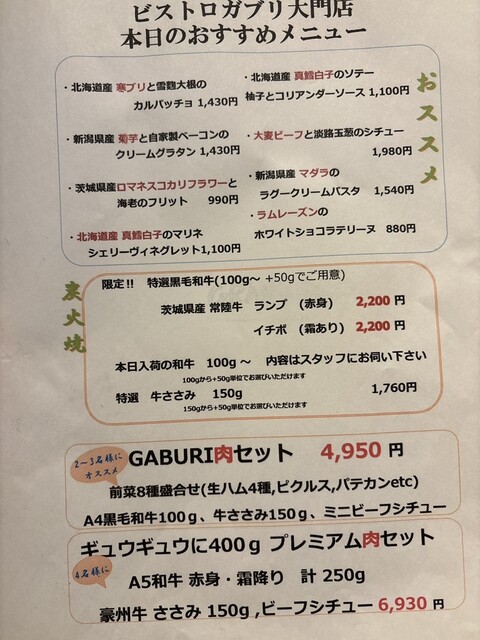 ビストロガブリ大門店
本日のおすすめメニュー
おススメ
・北海道産 寒ブリと雪麴大根の
カルパッチョ 1,430円
・新潟県産 菊芋と自家製ベーコンの
クリームグラタン 1,430円
・茨城県産ロマネスコカリフラワーと
海老のフリット 990円
・北海道産 真鱈白子のマリネ
シェリーヴィネグレット1,100円
・北海道産 真鱈白子のソテー
柚子とコリアンダーソース 1,100円
・大麦ビーフと淡路玉葱のシチュー
1,980円
・新潟県産 マダラの
ラグークリームパスタ 1,540円
・ラムレーズンの
ホワイトショコラテリーヌ 880円
炭火焼
限定!! 特選黒毛和牛(100g～ +50gでご用意)
茨城県産 常陸牛 ランプ (赤身) 2,200 円
イチボ (霜あり) 2,200 円
本日入荷の和牛 100g ～ 内容はスタッフにお伺い下さい
100gから+50g単位でお選びいただけます
特選 牛ささみ 150g 1,760円
150gから+50g単位でお選びいただけます
2～3名様に
オススメ
GABURI肉セット 4,950 円
前菜8種盛合せ(生ハム4種,ピクルス,パテカンetc)
A4黒毛和牛100ｇ、牛ささみ150ｇ、ミニビーフシチュー
ギュウギュウに400ｇ プレミアム肉セット
4名様に
A5和牛 赤身・霜降り 計 250g
豪州牛 ささみ 150g ,ビーフシチュー 6,930 円